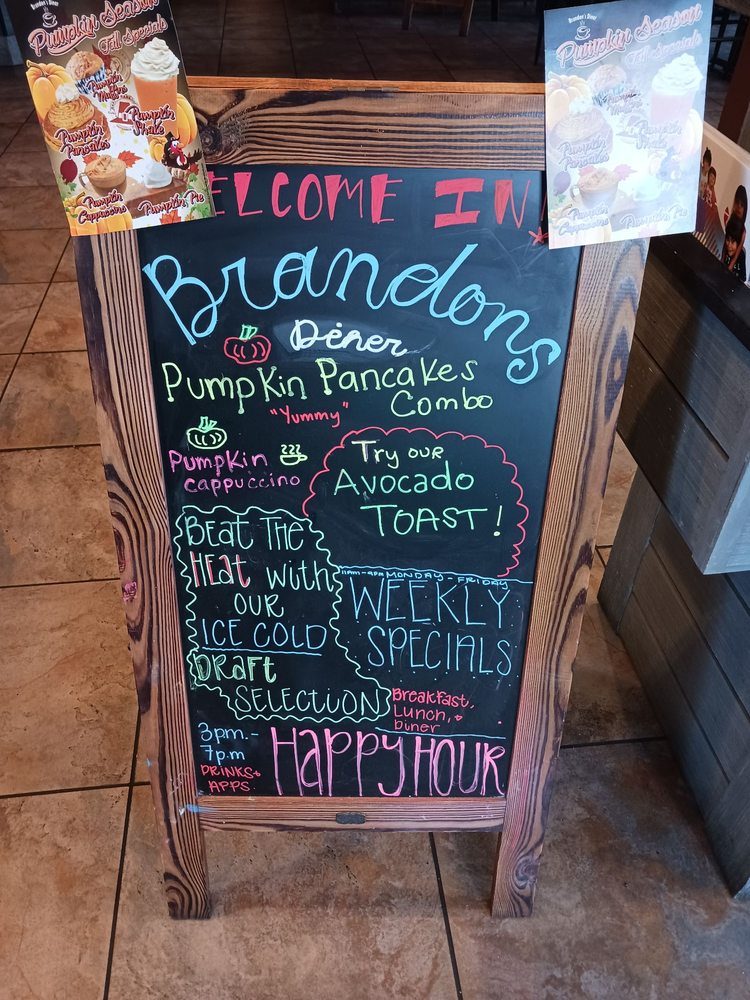 Brandon's Diner
Pumpkin Season
Fall Specials
Pumpkin Muffins
Pumpkin Shake
Pumpkin Pancakes
Pumpkin Cappuccino
Pumpkin Pie
Brandon's Diner
Pumpkin Season
Fall Specials
Pumpkin
Pumpkin Shake
Pumpkin Pancakes
Pumpkin Cappuccino
Pumpkin Pie
ELCOME IN!
Brandons
Diner
Pumpkin Pancakes
Combo
"Yummy"
Pumpkin
cappuccino
Try our
Avocado
TOAST!
BEAT THE
HEAT with
OUR
ICE COLD
DRAFT
SELECTION
MONDAY - FRIDAY
WEEKLY
SPECIALS
Breakfast,
Lunch,
Diner
3pm.-
7p.m
DRINKS+
APPS.
HAPPY HOUR